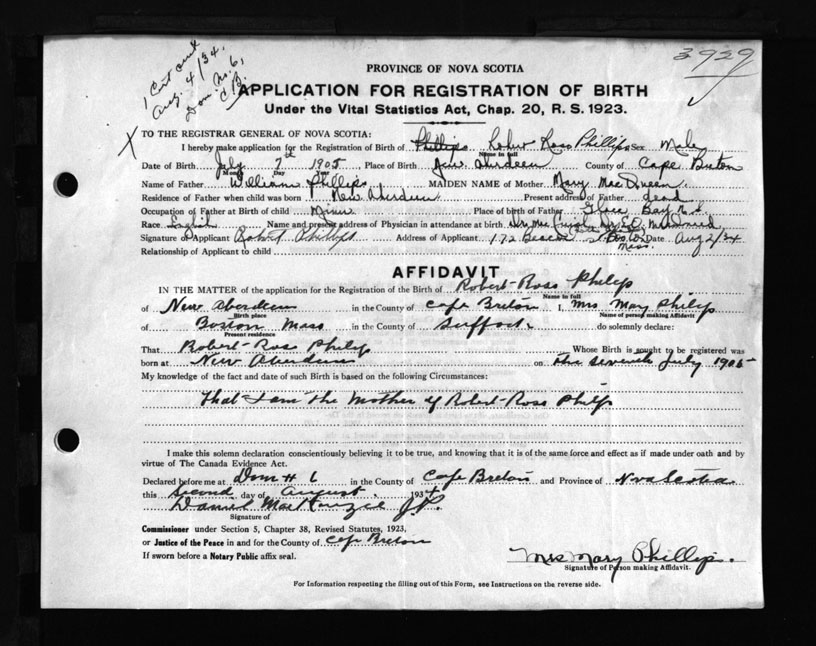 3929
1 Cert out
Aug. 4/34.
Dom. No. 6,
C.B.
PROVINCE OF NOVA SCOTIA
APPLICATION FOR REGISTRATION OF BIRTH
Under the Vital Statistics Act, Chap. 20, R. S. 1923.
X TO THE REGISTRAR GENERAL OF NOVA SCOTIA:
I hereby make application for the Registration of Birth of Phillips Robert Ross Phillips Sex Male
Name in full
Date of Birth July 7th 1905 Place of Birth New Aberdeen County of Cape Breton
Month Day Year
Name of Father William Phillips MAIDEN NAME of Mother Mary MacQueen
Residence of Father when child was born New Aberdeen Present address of Father dead
Occupation of Father at Birth of child Miner Place of birth of Father Glace Bay N.S.
Race English Name and present address of Physician in attendance at birth Dr. McDonald
Signature of Applicant Robert Phillips Address of Applicant 172 Beacon St Boston Date Aug 2/34
Mass.
Relationship of Applicant to child
AFFIDAVIT
IN THE MATTER of the application for the Registration of the Birth of Robert-Ross Philip
Name in full
of New Aberdeen in the County of Cape Breton I, Mrs Mary Philip
Birth place Name of person making Affidavit
of Boston Mass in the County of Suffolk do solemnly declare:
Present residence
That Robert-Ross Philip Whose Birth is sought to be registered was
born at New Aberdeen on the seventh July 1905
My knowledge of the fact and date of such Birth is based on the following Circumstances:
That I am the Mother of Robert-Ross Philip
I make this solemn declaration conscientiously believing it to be true, and knowing it is of the same force and effect as if made under oath and by
virtue of The Canada Evidence Act.
Declared before me at Dom # 6 in the County of Cape Breton and Province of Nova Scotia
this Second day of August, 1934
Daniel MacKenzie J.P.
Signature of
Commissioner under Section 5, Chapter 38, Revised Statutes, 1923,
or Justice of the Peace in and for the County of Cape Breton
If sworn before a Notary Public affix seal.
Mrs Mary Phillips.
Signature of Person making Affidavit.
For Information respecting the filling out of this Form, see Instructions on the reverse side.